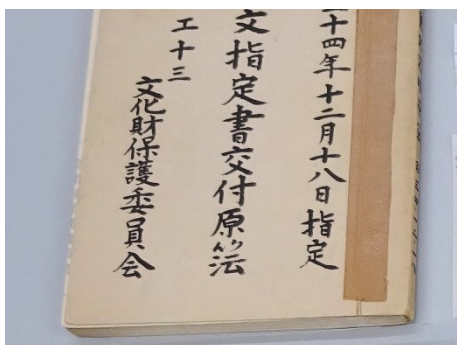 十四年十二月十八日指定
文指定書交付原簿
工十三
文化財保護委員会